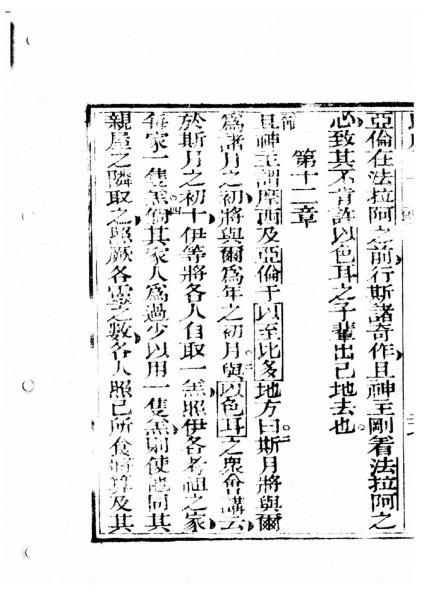 亞倫在法拉阿之前行斯諸奇作且神主剛着法拉阿之
心致其不肯許以色耳之子輩出己地去也
第十二章
且神主謂摩西及亞倫于以至比多地方曰斯月將與爾
為諸月之初將與爾為年之初月與以色耳之衆會講云
於斯月之初十伊等將各人自取一羔照伊各老祖之家
每家一隻羔倘其家人為過少以用一隻羔則使他同其
親屋之隣取之照厥各靈之數各人照己所食將算及其